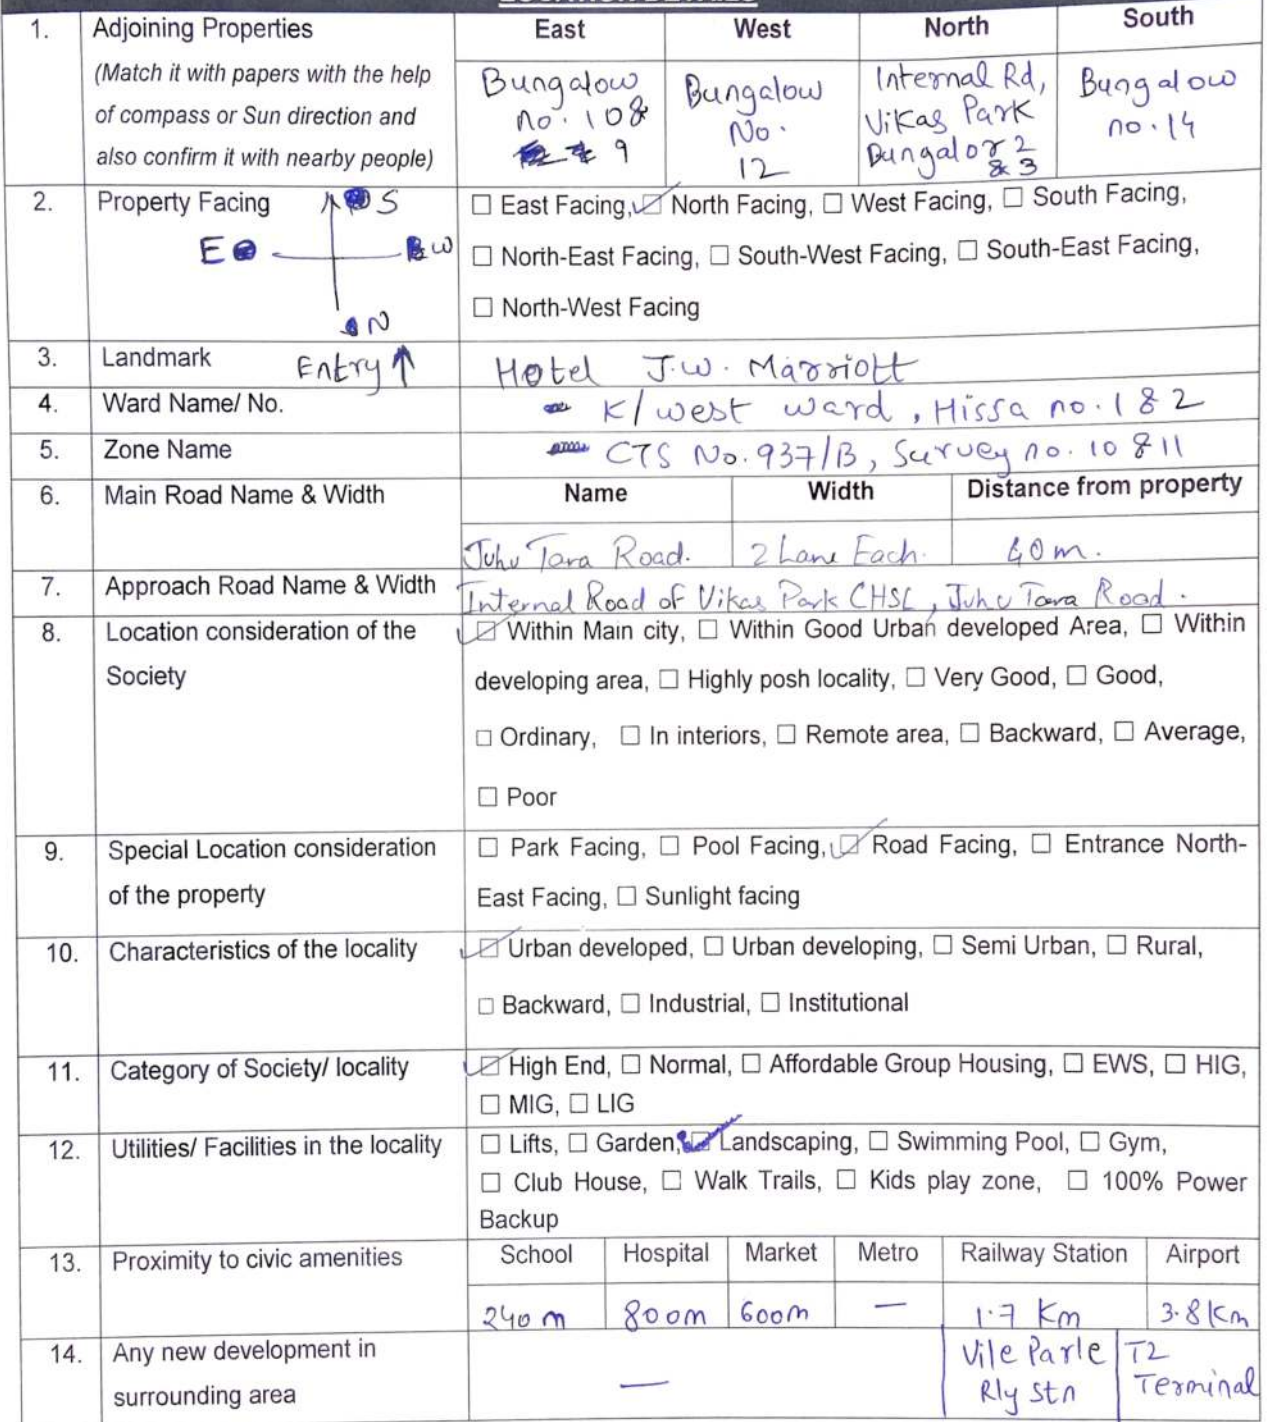 LOCATION DETAILS
1. Adjoining Properties East West North South
(Match it with papers with the help
of compass or Sun direction and
also confirm it with nearby people)
Bungalow
no. 10 &
9
Bungalow
No.
12
Internal Rd,
Vikas Park
Bungalow 2
& 3
Bungalow
no. 14
2. Property Facing
S
E W
N
☐ East Facing, ☑ North Facing, ☐ West Facing, ☐ South Facing,
☐ North-East Facing, ☐ South-West Facing, ☐ South-East Facing,
☐ North-West Facing
3. Landmark Entry ↑ Hotel J.W. Marriott
4. Ward Name/ No. K/west ward, Hissa no. 1 & 2
5. Zone Name CTS No. 937/B, Survey no. 10 & 11
6. Main Road Name & Width Name Width Distance from property
Juhu Tara Road. 2 Lane Each. 40m.
7. Approach Road Name & Width Internal Road of Vikas Park CHSL, Juhu Tara Road.
8. Location consideration of the
Society
☑ Within Main city, ☐ Within Good Urban developed Area, ☐ Within
developing area, ☐ Highly posh locality, ☐ Very Good, ☐ Good,
☐ Ordinary, ☐ In interiors, ☐ Remote area, ☐ Backward, ☐ Average,
☐ Poor
9. Special Location consideration
of the property
☐ Park Facing, ☐ Pool Facing, ☑ Road Facing, ☐ Entrance North-
East Facing, ☐ Sunlight facing
10. Characteristics of the locality
☑ Urban developed, ☐ Urban developing, ☐ Semi Urban, ☐ Rural,
☐ Backward, ☐ Industrial, ☐ Institutional
11. Category of Society/ locality
☑ High End, ☐ Normal, ☐ Affordable Group Housing, ☐ EWS, ☐ HIG,
☐ MIG, ☐ LIG
12. Utilities/ Facilities in the locality
☐ Lifts, ☐ Garden, ☑ Landscaping, ☐ Swimming Pool, ☐ Gym,
☐ Club House, ☐ Walk Trails, ☐ Kids play zone, ☐ 100% Power
Backup
13. Proximity to civic amenities School Hospital Market Metro Railway Station Airport
240 m 800m 600m — 1.7 Km 3.8 Km
14. Any new development in
surrounding area
—
Vile Parle
Rly Stn
T2
Terminal